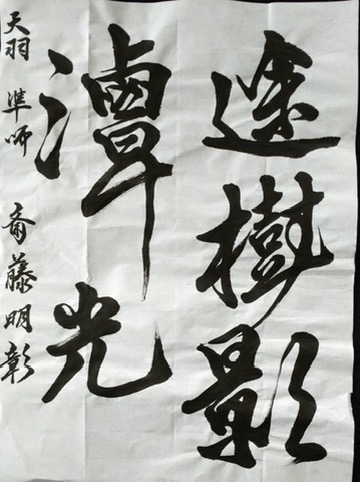 途樹影
潭光
天羽 準師 斎藤明彰